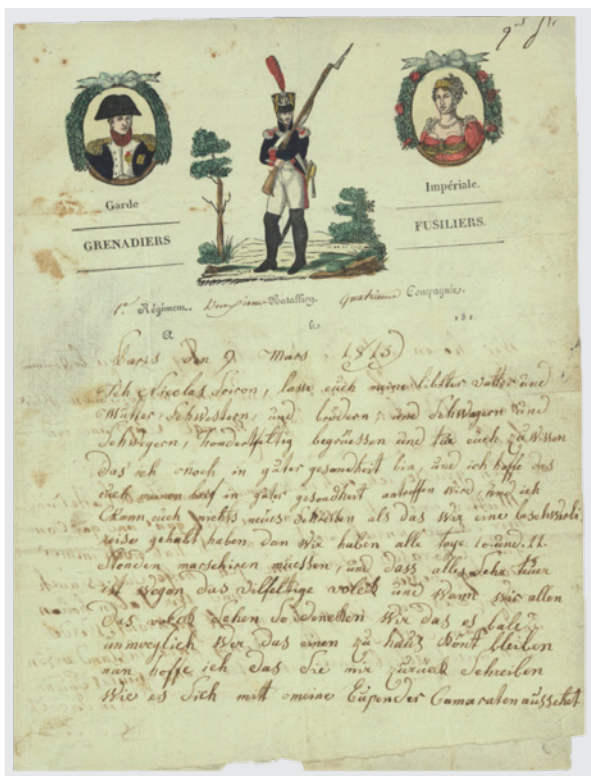 Garde
GRENADIERS
Impériale.
FUSILIERS.
1er Régiment. Deuxieme Batallion, Quatrieme Compagnie.
A le 181
Paris Den 9. Mars. 1813
Ich Nicolas Soiron, lasse euch meine libster vatter und
Mutter, Schwestern, und brüdern, und Schwagern und
Schwegern, hondertfeltig begrüssen und tue euch zu wissen
das ich noch in guter gesondheit bin, und ich hoffe das
euch meinen bref in guter gesondheit antreffen wird, und ich
kann euch nichts neues Schreiben als das wir eine beschwerli
reise gehabt haben dan wir haben alle tage 10 und 11
Stonden marschiren müessen, und dass alles Sehr teuer
ist wegen das vilfeltige volck und wann wir allen
das volck Sehen So dencken wir das es bale
unmoeglich wer, das einen zu haus könt bleiben
nun hoffe ich das Sie mir zurück Schreiben
wie es Sich mitt meine Eupender Camaraten aussehet